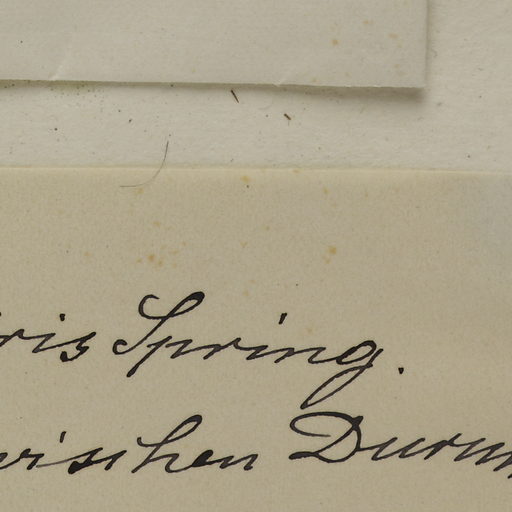 ris Spring.
wischen Durum